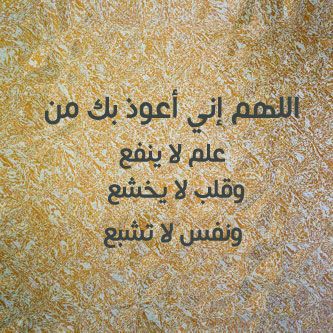 اللهم إني أعوذ بك من
علم لا ينفع
وقلب لا يخشع
ونفس لا تشبع